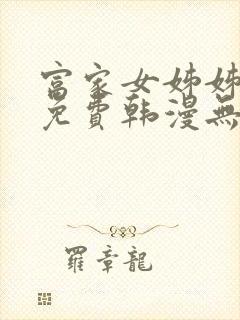 富家女姊姊
免費韩漫無
羅章龍